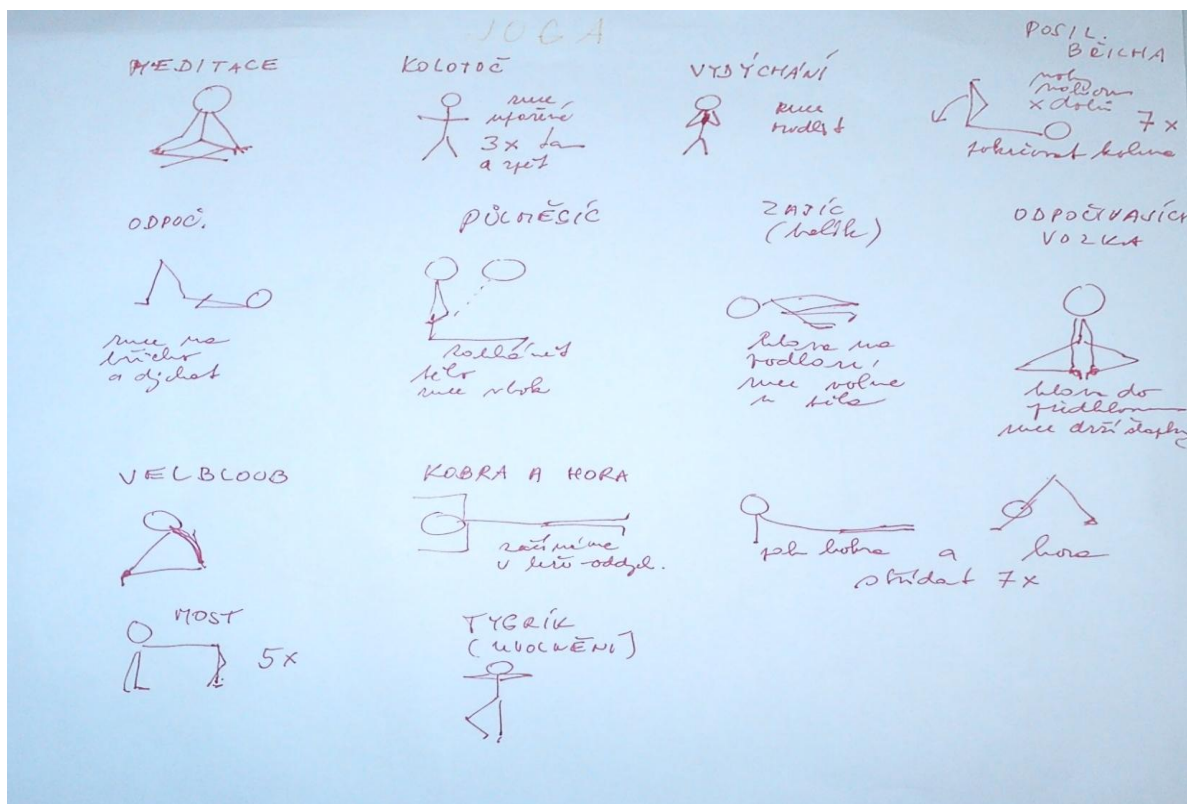 JOGA
MEDITACE
KOLOTOČ
ruce
upažené
3x tam
a zpět
VYDÝCHÁNÍ
ruce
POSIL.
BŘICHA
nohy
nahoru
x dolů
7x
pokrčovat kolena
ODPOČ.
ruce na
břicho
a dýchat
PŮLMĚSÍC
tělo
ruce vbok
ZAJÍC
(balík)
hlava na
podlaze,
ruce volně
u těla
ODPOČÍVAJÍCÍ
VOZKA
hlava do
předklonu
ruce drží šlapky
VELBLOUB
KOBRA A HORA
začínáme
v leže-oddych.
jak kobra a hora
střídat 7x
MOST
5x
TYGRÍK
(UVOLNĚNÍ)